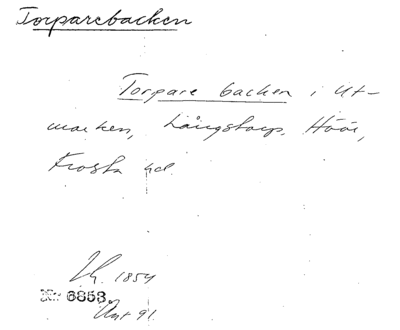 Torparebacken
Torpare backen i Ut-
marken, Långstorp, Höör,
Frosta hd.
1854
6853